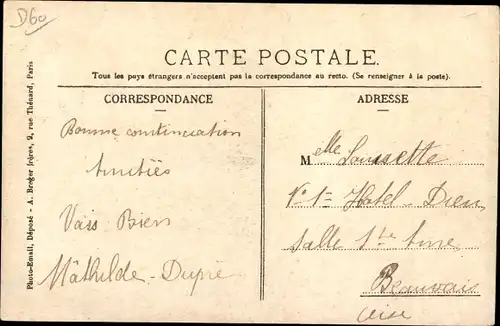 D60
CARTE POSTALE.
Tous les pays étrangers n'acceptent pas la correspondance au recto. (Se renseigner à la poste).
CORRESPONDANCE
Bonne continuation
Amitiés
Vais Bien
Mathilde-Dupré
ADRESSE
Melle Lansette
Hotel-Dieu
Salle Ste Anne
Beauvais
Oise
Photo-Email, Déposé - A. Breger frères, 9, rue Thénard, Paris